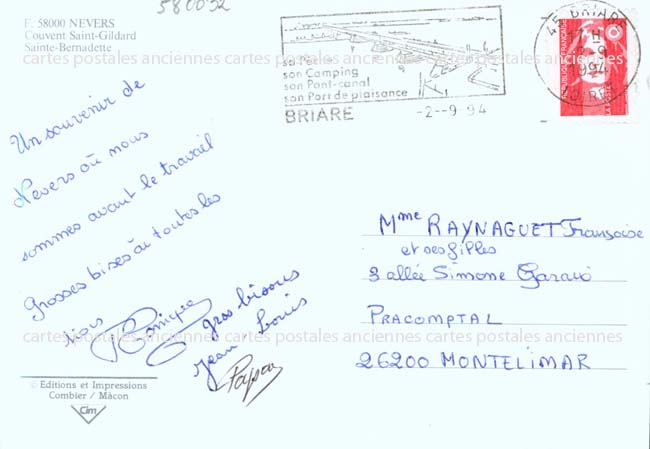 580032
F. 58000 NEVERS
Couvent Saint-Gildard
Sainte-Bernadette
sa Pêche
son Camping
son Pont-canal
son Port de plaisance
BRIARE
-2--9 94
45 BRIARE
17 H
2-9
1994
LOIRET
cartes postales anciennes cartes postales anciennes cartes postales anciennes
Un souvenir de
Nevers où nous
sommes avant le travail
Grosses bises à toutes les
trois
gros bisous
Jean Louis
Papou
Mme RAYNAGUET Françoise
et ses filles
3 allée Simone Garaud
PRACOMPTAL
26200 MONTELIMAR
cartes postales anciennes cartes postales anciennes cartes postales anciennes
© Editions et Impressions
Combier / Mâcon
Cim